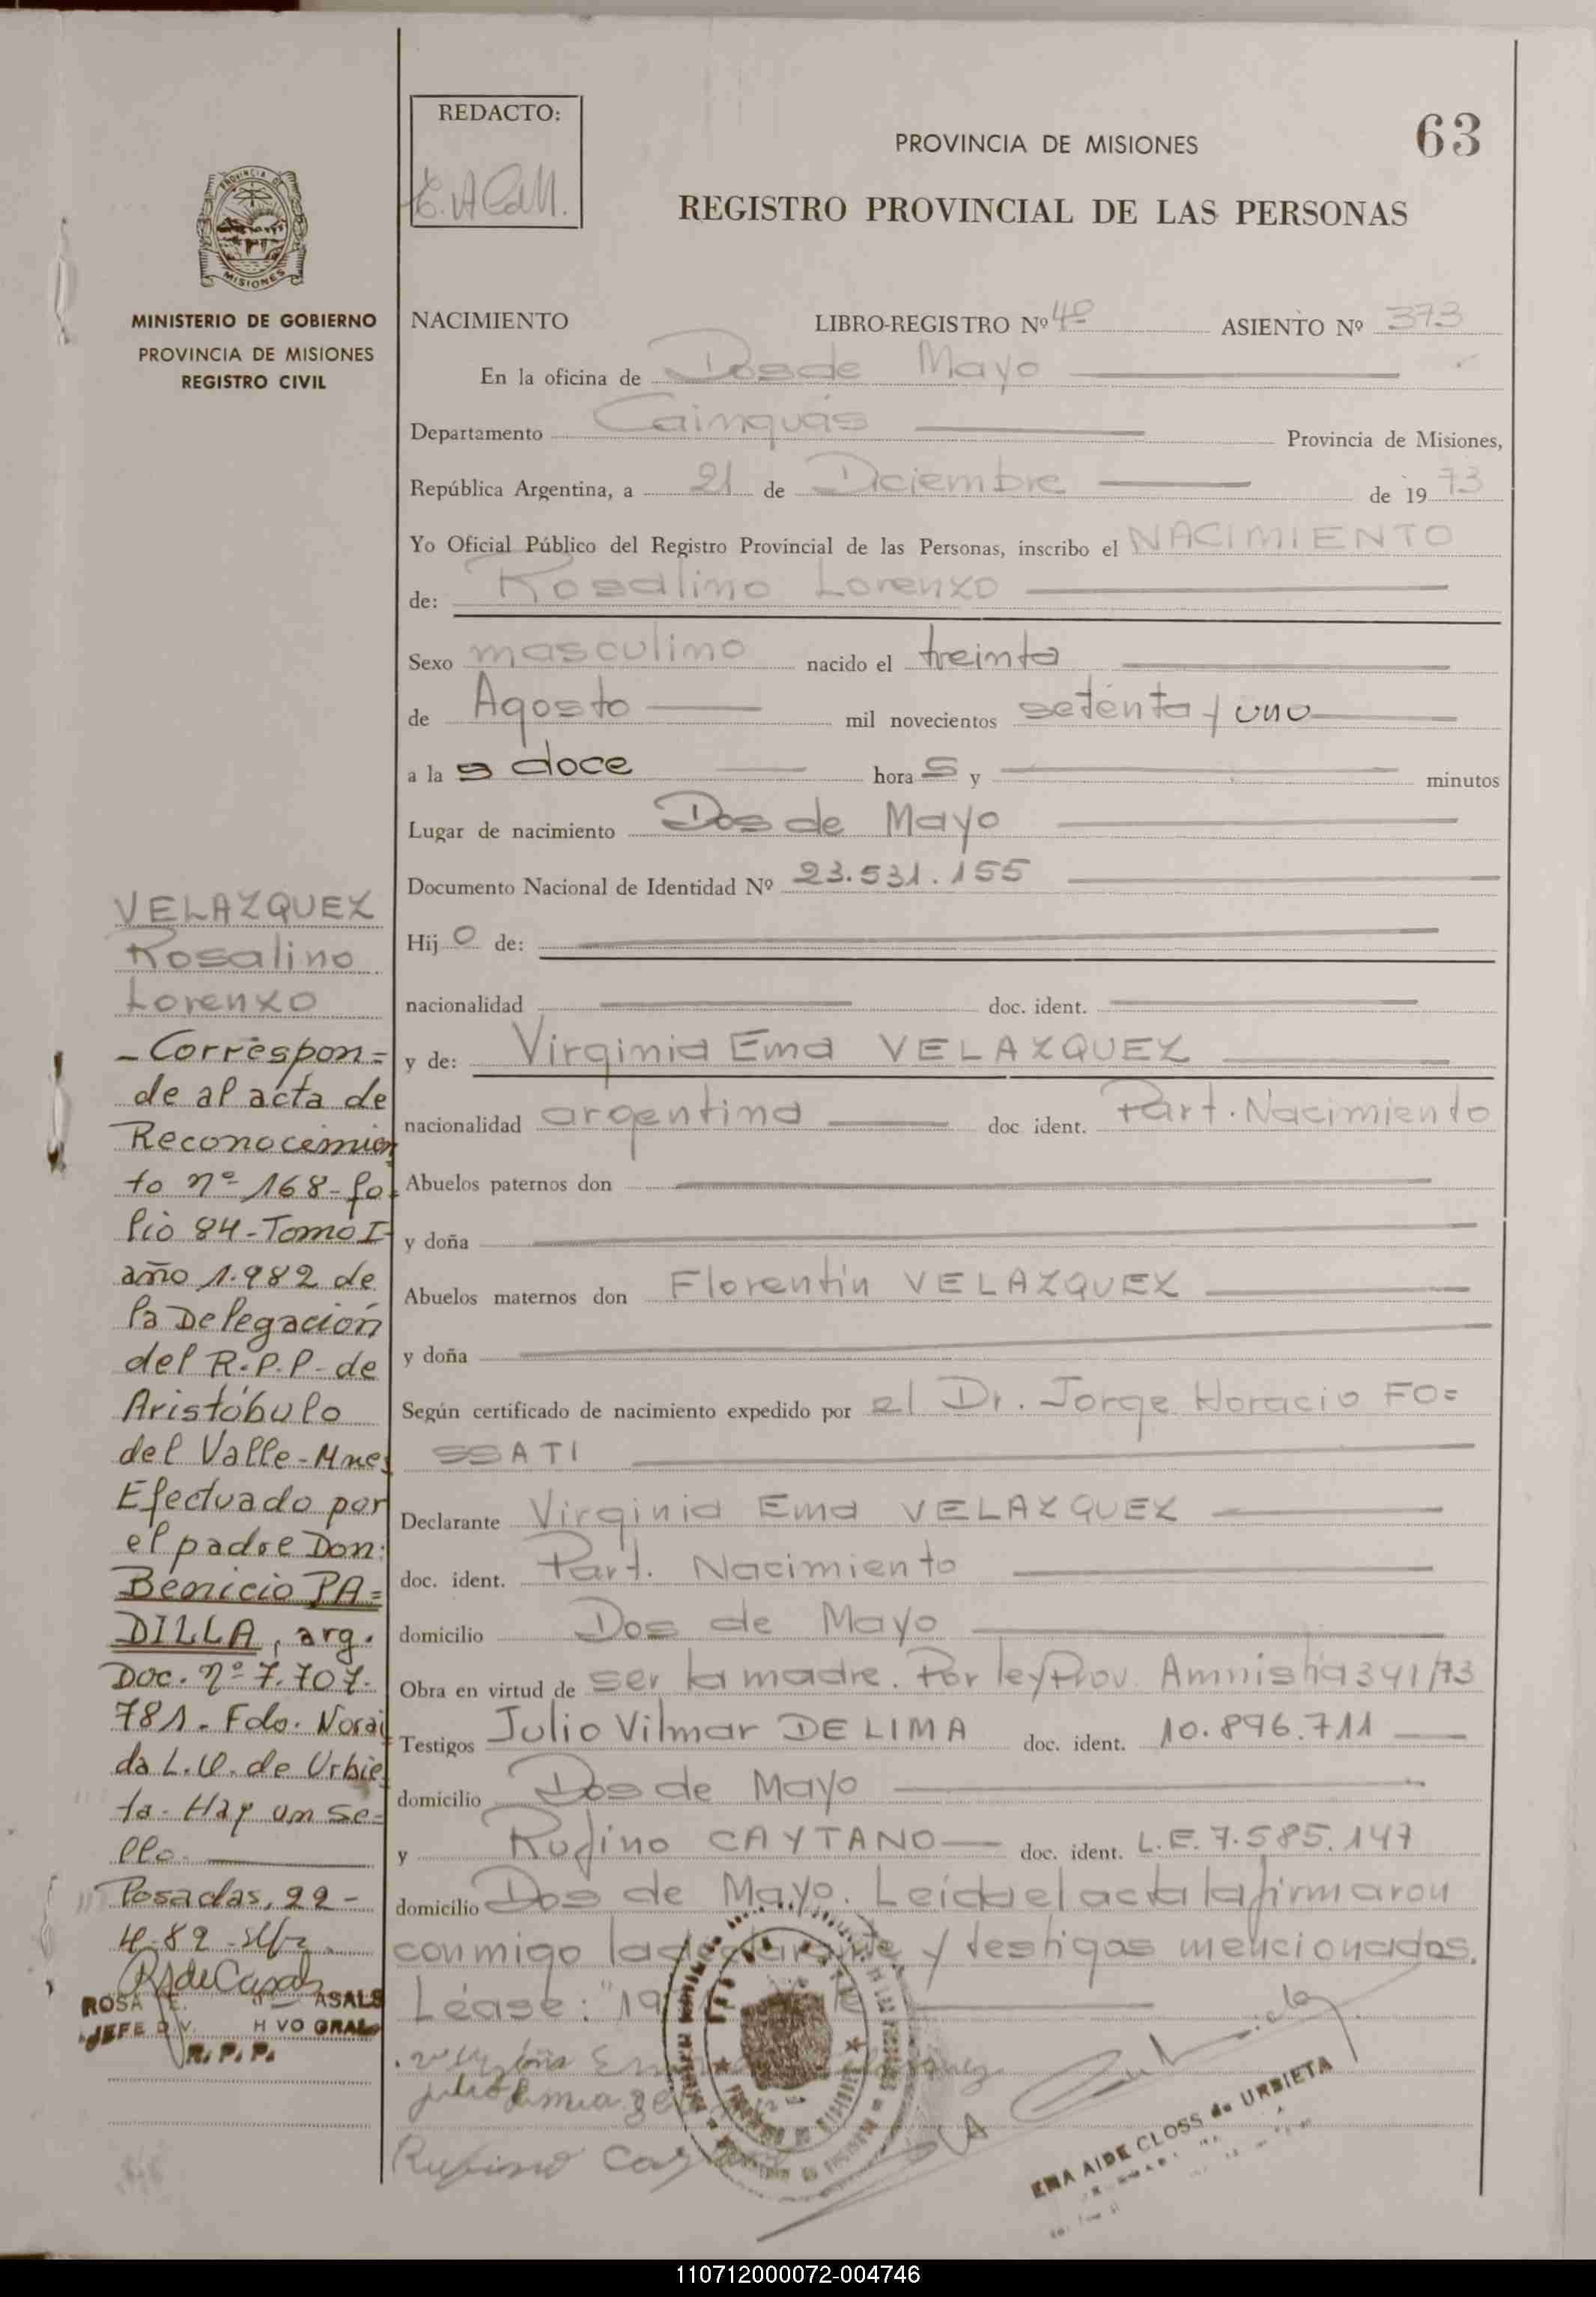 REDACTO:
PROVINCIA DE MISIONES
63
REGISTRO PROVINCIAL DE LAS PERSONAS
PROVINCIA DE
MISIONES
MINISTERIO DE GOBIERNO
PROVINCIA DE MISIONES
REGISTRO CIVIL
NACIMIENTO LIBRO-REGISTRO Nº 4º ASIENTO Nº 373
En la oficina de Dos de Mayo
Departamento Cainguás Provincia de Misiones,
República Argentina, a 21 de Diciembre de 1973
Yo Oficial Público del Registro Provincial de las Personas, inscribo el NACIMIENTO
de: Rosalino Lorenzo
Sexo masculino nacido el treinta
de Agosto mil novecientos setenta y uno
a las doce horas y minutos
Lugar de nacimiento Dos de Mayo
Documento Nacional de Identidad Nº 23.531.155
Hijo de:
nacionalidad doc. ident.
y de: Virginia Ema VELAZQUEZ
nacionalidad argentina doc ident. Part. Nacimiento
Abuelos paternos don
y doña
Abuelos maternos don Florentín VELAZQUEZ
y doña
Según certificado de nacimiento expedido por el Dr. Jorge Horacio FO=
SSATI
Declarante Virginia Ema VELAZQUEZ
doc. ident. Part. Nacimiento
domicilio Dos de Mayo
Obra en virtud de ser la madre. Por ley Prov. Amnistía 341/73
Testigos Julio Vilmar DE LIMA doc. ident. 10.896.711
domicilio Dos de Mayo
y Rufino CAYTANO doc. ident. L.E. 7.585.147
domicilio Dos de Mayo. Leida el acta la firmaron
conmigo la declarante y testigos mencionados.
Léase: "19
Rufino
EMA AIDE CLOSS de URBIETA
VELAZQUEZ
Rosalino
Lorenzo
- Correspon=
de al acta de
Reconocimien
to nº 168-fo
lio 84-Tomo I
año 1.982 de
la Delegación
del R.P.P. de
Aristóbulo
del Valle-Mnes
Efectuado por
el padre Don:
Benicio PA=
DILLA, arg.
Doc. nº 7.707.
781. Fdo. Norai
da L.V. de Urbie
ta- Hay un se=
llo.
Posadas, 22-
4-82
ROSA E. ASALS
JEFE DIV. H VO GRAL
R.P.P.
110712000072-004746